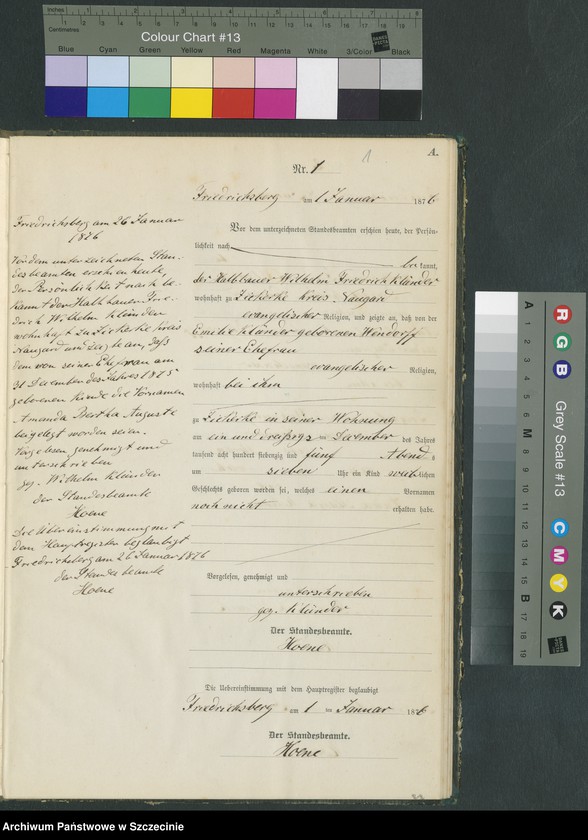 Inches 1 2 3 4 5 6 7 8
Centimetres 1 2 3 4 5 6 7 8 9 10 11 12 13 14 15 16 17 18 19
Colour Chart #13
Blue Cyan Green Yellow Red Magenta White 3/Color Black
A.
1
Nr. 1
Friedrichsberg am 1 Januar 1876
Vor dem unterzeichneten Standesbeamten erschien heute, der Persön-
lichkeit nach
be kannt,
der Halbbauer Wilhelm Friedrich Klünder
wohnhaft zu Zickerke Kreis Naugard
evangelischer Religion, und zeigte an, daß von der
Emilie Klünder geborenen Wendorff
seiner Ehefrau
evangelischer Religion,
wohnhaft bei ihm
zu Zickerke in seiner Wohnung
am ein und dreißigs ten December des Jahres
tausend acht hundert siebenzig und fünf Abend s
um sieben Uhr ein Kind weib lichen
Geschlechts geboren worden sei, welches einen Vornamen
noch nicht erhalten habe.
Vorgelesen, genehmigt und
unterschrieben
gez. Klünder
Der Standesbeamte.
Hoene
Die Uebereinstimmung mit dem Hauptregister beglaubigt
Friedrichsberg am 1 ten Januar 1876
Der Standesbeamte.
Hoene
Friedrichsberg am 26 Januar
1876
Vor dem unterzeichneten Stan-
desbeamten erschien heute,
der Persönlichkeit nach be-
kannt der Halbbauer Frie-
drich Wilhelm Klünder
wohnhaft zu Zickerke Kreis
Naugard und zeigte an, daß
dem von seiner Ehefrau am
31 December des Jahres 1875
geborenen Kinde die Vornamen
Amanda Bertha Auguste
beigelegt worden seien.
Vorgelesen genehmigt und
unterschrieben
gez. Wilhelm Klünder
der Standesbeamte
Hoene
Die Übereinstimmung mit
dem Hauptregister beglaubigt
Friedrichsberg am 26 Januar 1876
der Standesbeamte
Hoene
Grey Scale #13
R G B C M Y K
A 1 2 3 4 5 6 M 8 9 10 11 12 13 14 15 B 17 18 19
Archiwum Państwowe w Szczecinie